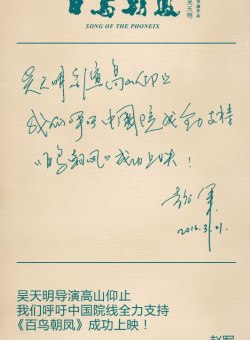 百鸟朝凤
吴天明
SONG OF THE PHONEIX
吴天明导演高山仰止
我们呼吁中国院线全力支持
《百鸟朝凤》成功上映！
2016.3.21.
吴天明导演高山仰止
我们呼吁中国院线全力支持
《百鸟朝凤》成功上映！